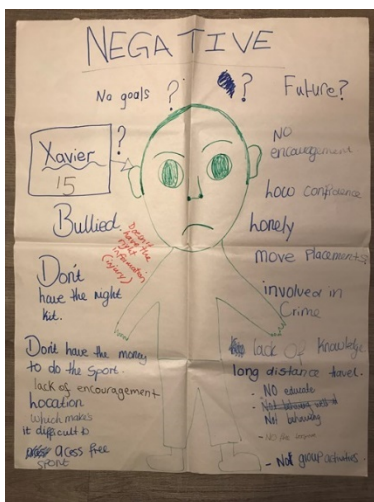 NEGATIVE
No goals ? ? Future?
?
Xavier
15
Bullied.
Doesn't
have the
right
information
Don't
have the right
kit.
Don't have the money
to do the sport.
lack of encouragement
Location
which makes
it difficult to
acess free
sport
No
encouragement
Low confidence
Lonely
move Placements
involved in
Crime
lack Of Knowledge
long distance travel.
- NO educate
Not behaving
- Not group activities